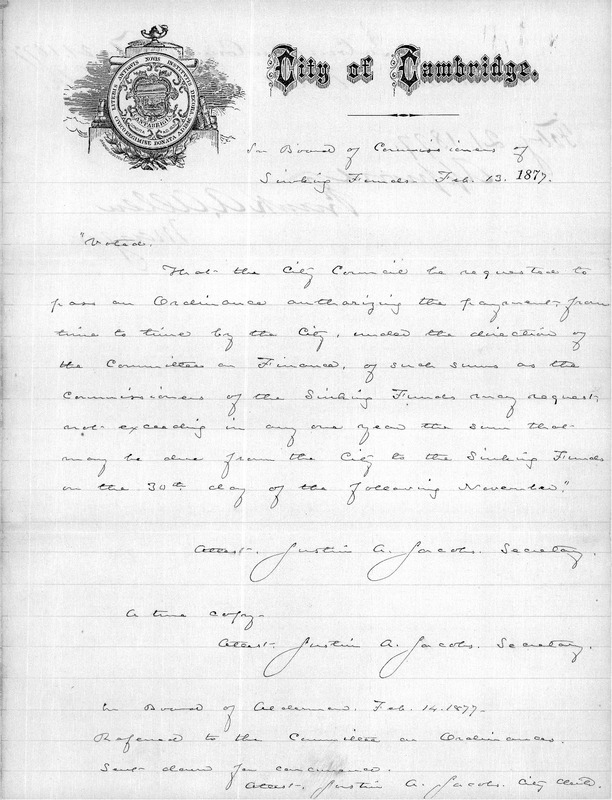 City of Cambridge.
LITERIS ANTIQUIS NOVIS INSTITUTIS DECORA
CANTABRIGIA
CIVICO REGIMINE DONATA
In Board of Commissioners of
Sinking Funds. Feb. 13. 1877.
"Voted.
That the City Council be requested to
pass an Ordinance authorizing the payment, from
time to time by the City, under the direction of
the Committee on Finance, of such sums as the
Commissioners of the Sinking Funds may request,
not exceeding in any one year the sum that
may be due from the City to the Sinking Funds
on the 30th day of the following November."
Attest. Justin A. Jacobs. Secretary.
A true copy.
Attest. Justin A. Jacobs. Secretary.
In Board of Aldermen. Feb. 14. 1877.
Referred to the Committee on Ordinances.
Sent down for concurrence.
Attest. Justin A. Jacobs. City Clerk.